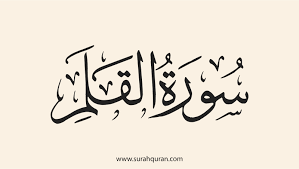 سُورَةُ القَلَمِ
www.surahquran.com